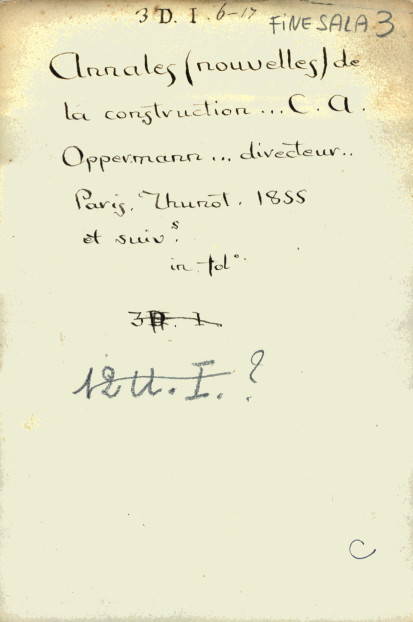 3 D. I. 6-17 FINE SALA 3
Annales (nouvelles) de
la construction ... C. A.
Oppermann ... directeur..
Paris. Thunot. 1855
et suivs.
in-folo.
3D. 1.
12 U. I. ?
C